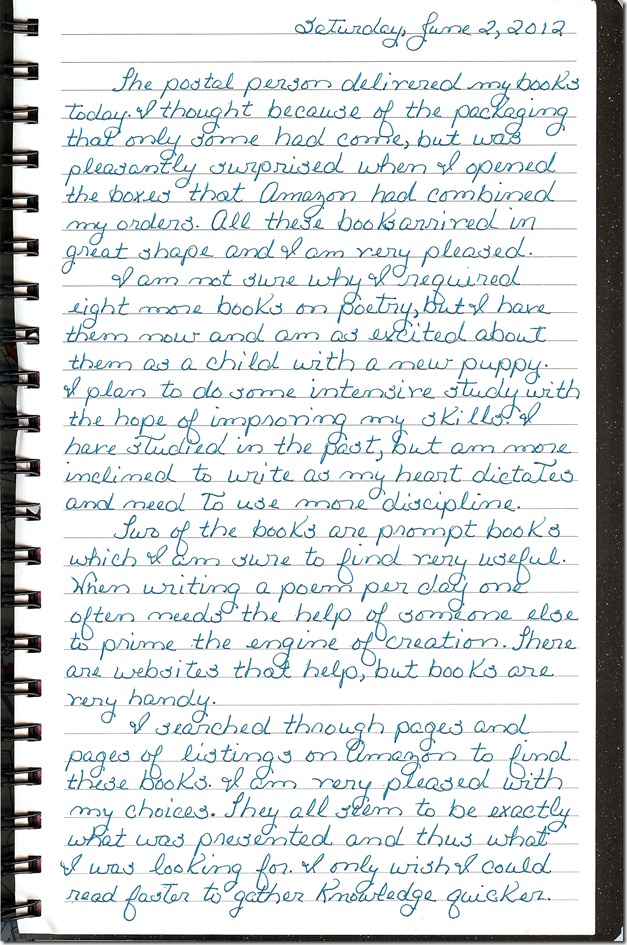 Saturday, June 2, 2012
The postal person delivered my books
today. I thought because of the packaging
that only some had come, but was
pleasantly surprised when I opened
the boxes that Amazon had combined
my orders. All these books arrived in
great shape and I am very pleased.
I am not sure why I required
eight more books on poetry, but I have
them now and am as excited about
them as a child with a new puppy.
I plan to do some intensive study with
the hope of improving my skills. I
have studied in the past, but am more
inclined to write as my heart dictates
and need to use more discipline.
Two of the books are prompt books
which I am sure to find very useful.
When writing a poem per day one
often needs the help of someone else
to prime the engine of creation. There
are websites that help, but books are
very handy.
I searched through pages and
pages of listings on Amazon to find
these books. I am very pleased with
my choices. They all seem to be exactly
what was presented and thus what
I was looking for. I only wish I could
read faster to gather knowledge quicker.